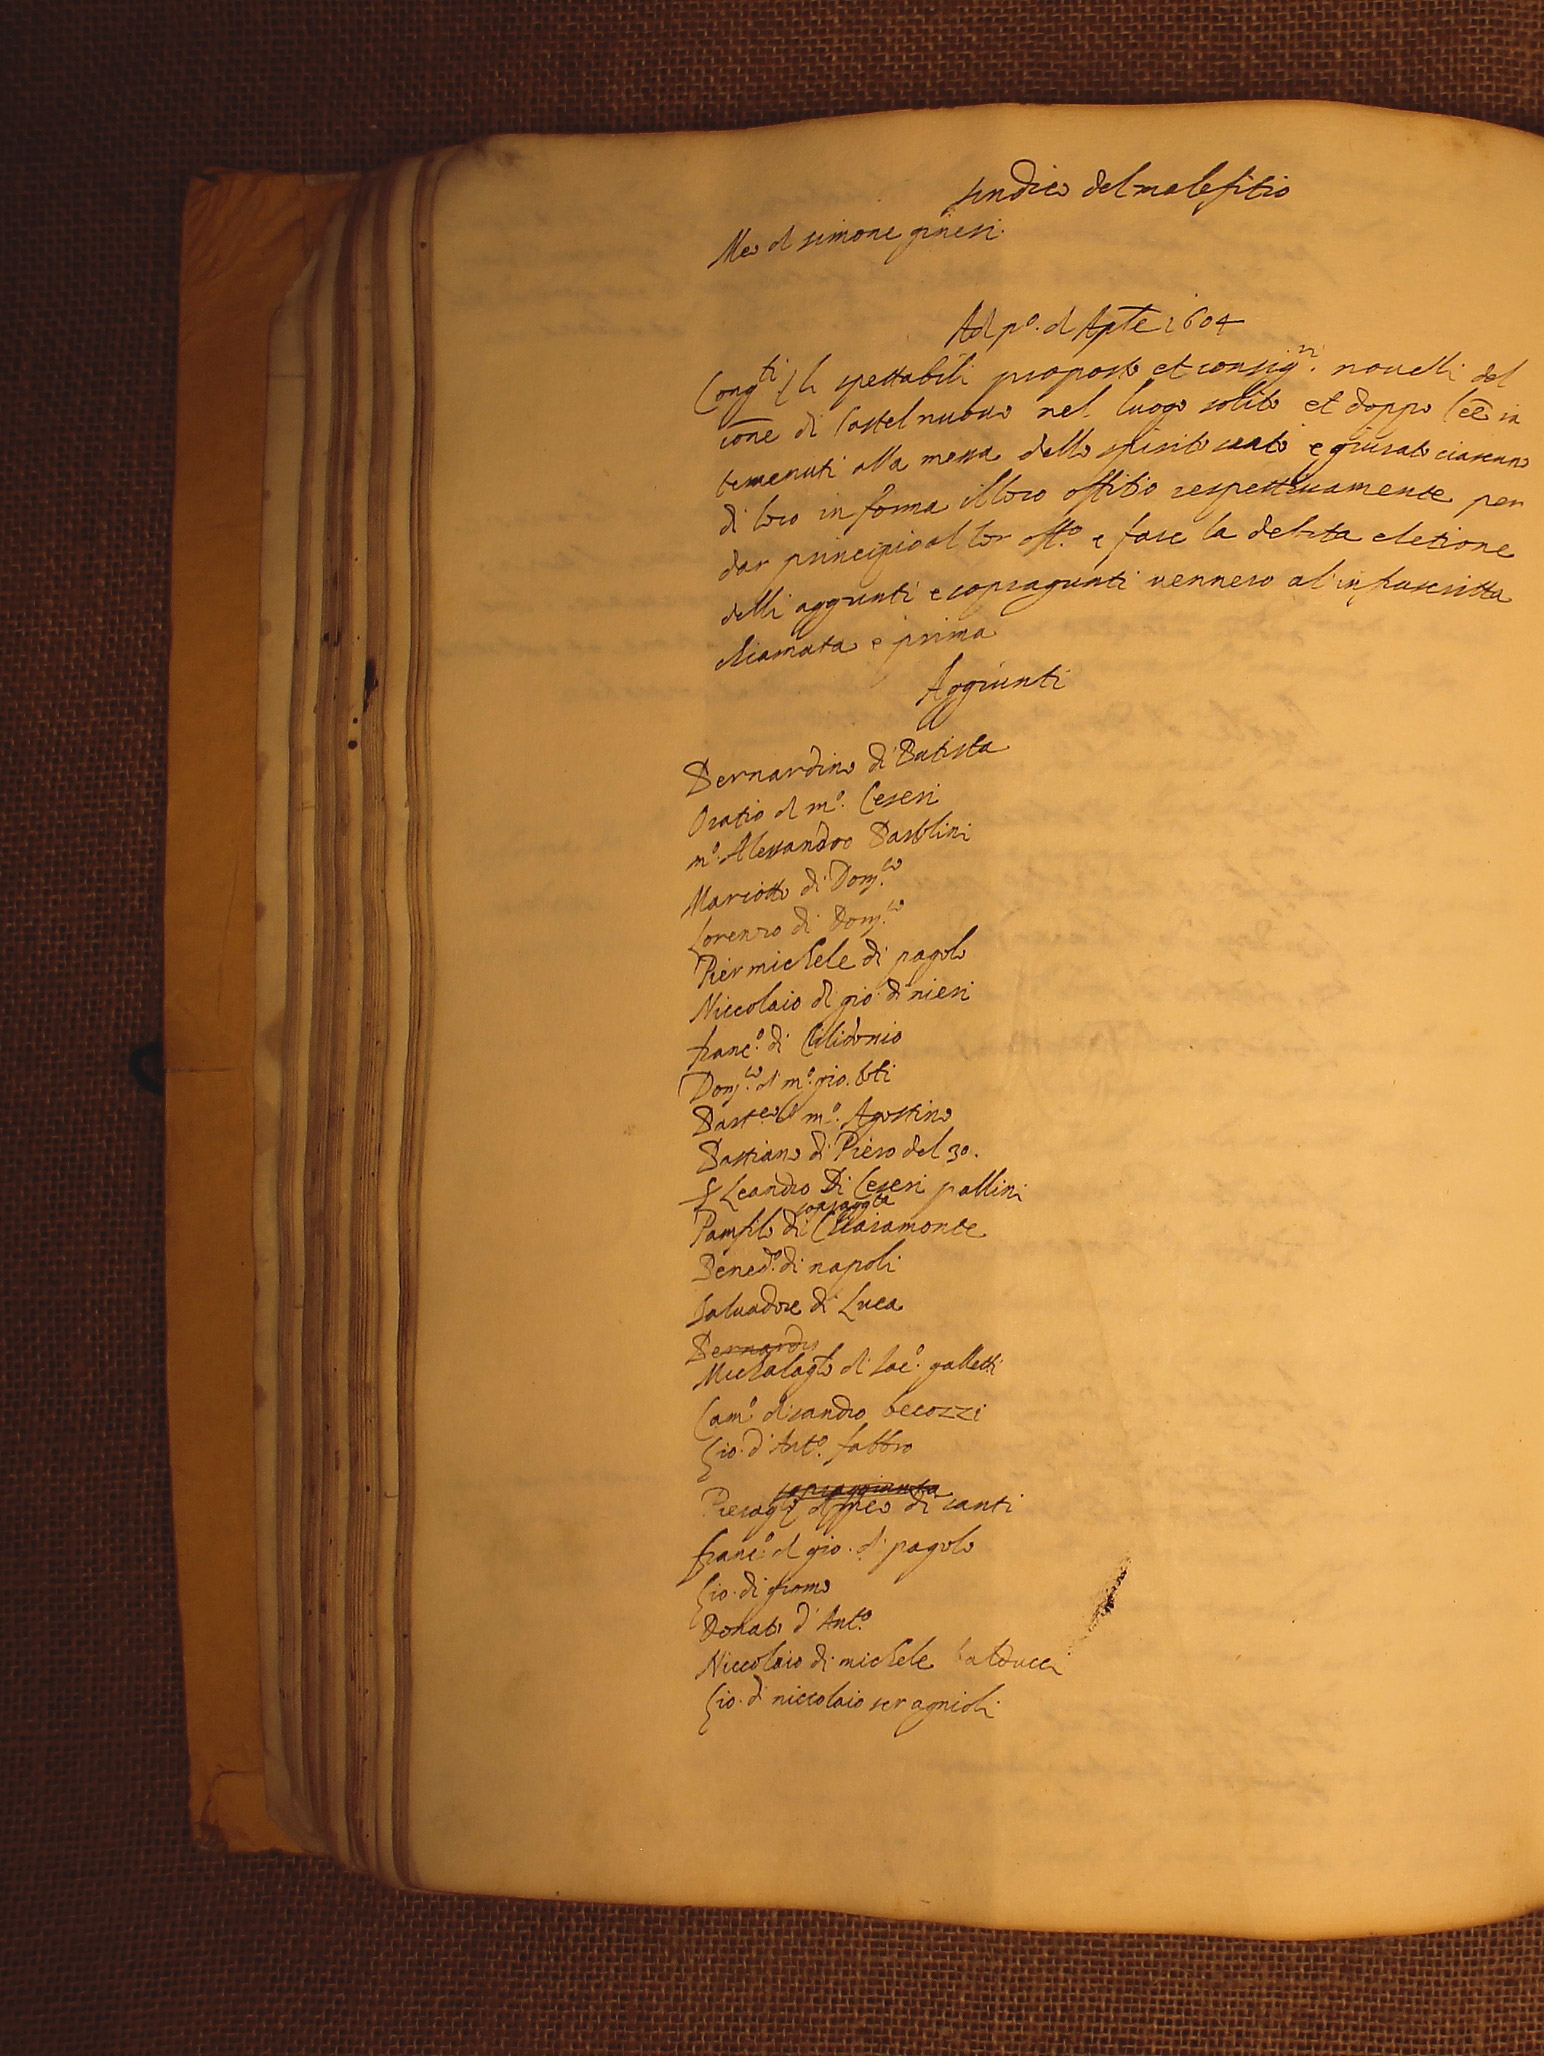 sindico del malefitio
Meo di simone ginesi
Ad p.o di Apr.le 1604
Cong.ti li spettabili proposto et consig.ri novelli del
co͞ne di Castelnuovo nel luogo solito et doppo e͞e in
tervenuti alla messa dello spirito santo e giurato ciascuno
di loro in forma il loro offitio respettivamente per
dar principio al lor off.o e fare la debita eletione
delli aggiunti e sopragiunti vennero al infrascritta
chiamata e prima
Aggiunti
Bernardino di Batista
Oratio di m.o Ceseri
m.o Alessandro Bartolini
Mariotto di Dom.co
Lorenzo di Dom.co
Piermichele di pagolo
Niccolaio di gio. di nieri
franc.o di Cilidonio
Dom.co di m.o gio. b̄ti
Bast.o di m.o Agostino
Bastiano di Piero del 30.
Leandro Di Ceseri pallini
sopragg.ta
Pamfilo di Chiaramonte
Bened.o di napoli
Salvadore di Luca
Bernardi
Michelag.lo di Iac.o galletti
Cam.o di sandro becozzi
Gio. d'Ant.o fabbro
sopraggiunta
Pierag.lo di meo di santi
franc.o di gio. di pagolo
Gio. di giromo
Donato d'Ant.o
Niccolaio di michele balducci
Gio. di niccolaio ser agnioli